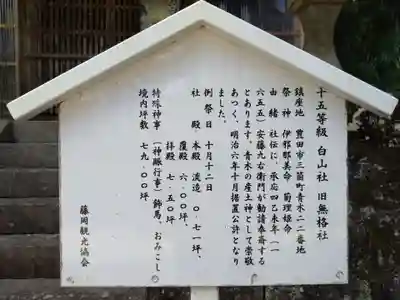 十五等級 白山社 旧無格社
鎮座地 豊田市三箇町青木二二番地
祭神 伊邪那美命 菊理姫命
由緒 社伝に、承応四乙未年(一
六五五)安藤九右衛門が勧請奉斎する
とあります。青木の産土神として崇敬
あつく、明治六年十月据置公許となり
ました。
例祭日 十月十二日
社殿 本殿 流造 〇・七一坪、
覆殿 六・〇〇坪、
拝殿 七・五〇坪
特殊神事 (神賑行事) 飾馬、おみこし
境内坪数 七九・〇〇坪
藤岡観光協会